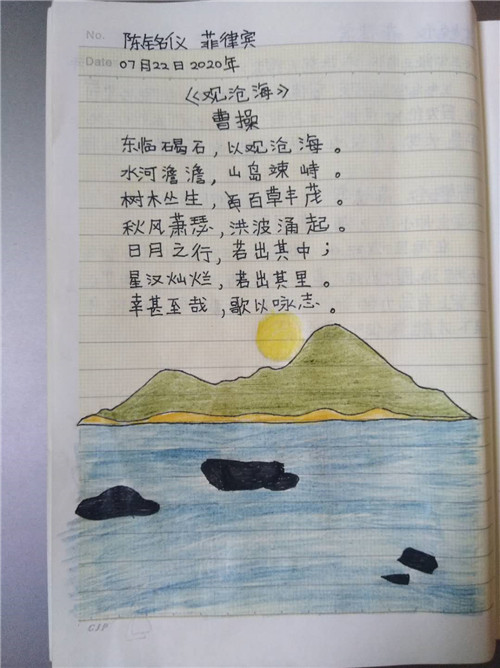 No. 陈铭仪 菲律宾
Date 07月22日2020年
《观沧海》
曹操
东临碣石，以观沧海。
水河澹澹，山岛竦峙。
树木丛生，百百草丰茂。
秋风萧瑟，洪波涌起。
日月之行，若出其中；
星汉灿烂，若出其里。
幸甚至哉，歌以咏志。